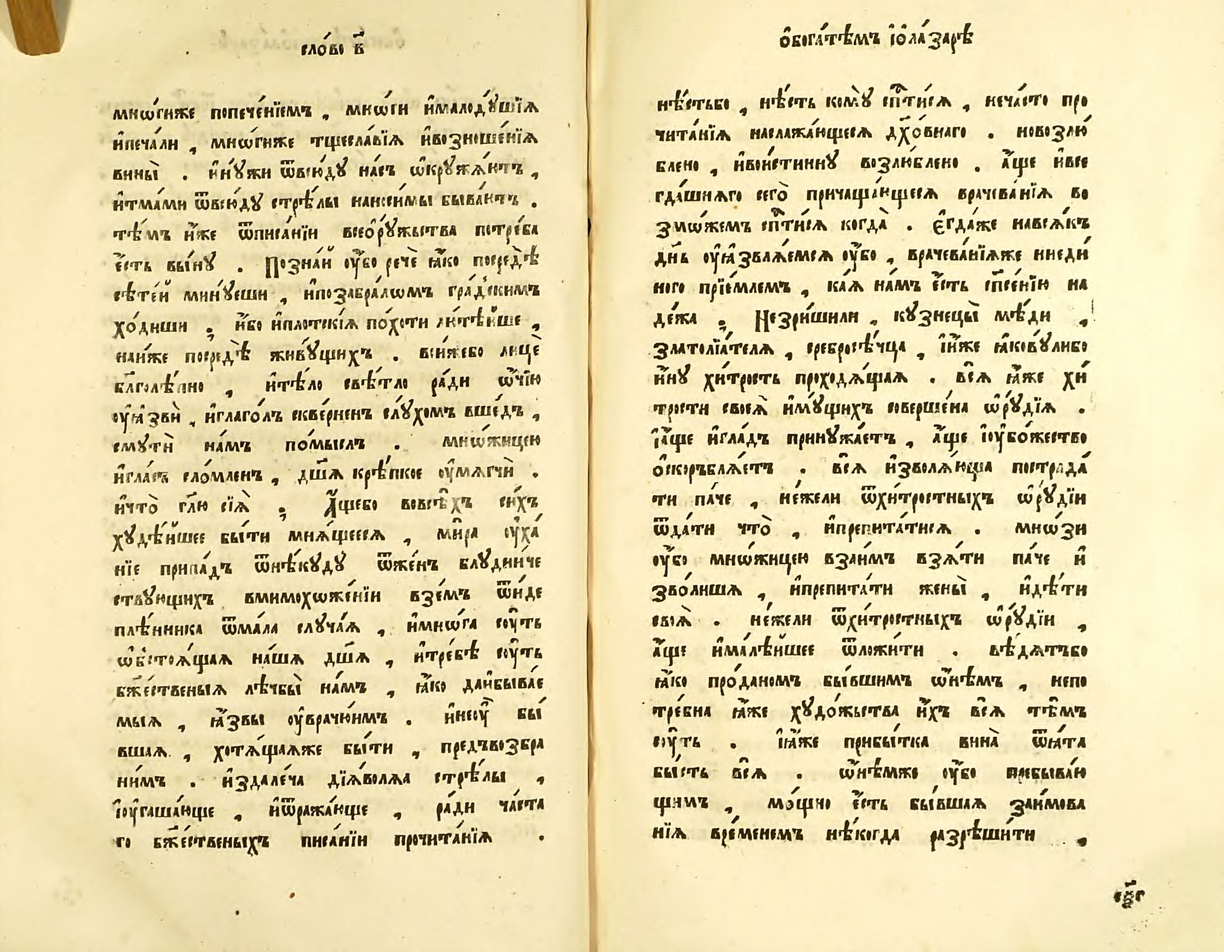 сло́во в҃
мнѡ́гиже попече́нїемъ , мнѡ́ги и҆малодꙋ́шїѧ
и҆печа́ли , мнѡ́гиже тщесла́вїѧ и҆возноше́нїѧ
вины̀ . и҆нꙋ́жи ѿвсю́дꙋ на́съ ѡ҆крꙋжа́ютъ ,
и҆тма́ми ѿвсю́дꙋ стрѣ́лы наноси́мы быва́ютъ .
тѣ́мъ и҆́же ѿписа́нїи всеѻрꙋ́жьства потре́ба
є҆́сть вы́нꙋ . Позна́й ᲂу҆́бо речѐ ꙗ҆́ко посредѣ̀
сѣте́й минꙋ́еши , и҆позабра́лѡмъ гра́дскимъ
хо́диши ; и҆́бо и҆плотскі́ѧ по́хоти лютѣ́йше ,
на́иже посредѣ̀ живꙋ́щихъ . вси́хжебо лицѐ
благолѣ́пно , и҆тѣ́ло свѣ́тло ра́ди ѻ҆́чїю
ᲂу҆ѧзвѝ , и҆глаго́лъ скве́рненъ слꙋ́хомъ вше́дъ ,
смꙋтѝ на́мъ по́мыслъ . мно́жицею
и҆гла́съ сло́мленъ , дш҃а̀ крѣ́пкое ᲂу҆мѧгчѝ .
и҆что̀ гл҃ю сїѧ̀ ; А҆́щебо вовсѣ́хъ си́хъ
хꙋдѣ́йшее бы́ти мнѧ́щеесѧ , ми́ра ᲂу҆ха́
нїе припа́дъ ѿнѣ́кꙋдꙋ ѿже́нъ блꙋдни́че
ствꙋющихъ вмимохѡже́нїи взе́мъ ѿи́де
плѣ́нника ѿма́ла слꙋ́чаѧ , и҆мнѡ́га сꙋ́ть
ѡ҆бстоѧ́щаѧ на́шѧ дш҃ѧ , и҆тре́бѣ сꙋ́ть
бж҃е́ственыѧ лѣчбы̀ на́мъ , ꙗ҆́ко даи҆быва́е
мыѧ , ꙗ҆́звы ᲂу҆врачю́имъ . и҆несꙋ́ бы́
вшаѧ , хотѧ́щаѧже бы́ти , предъвозбра
ни́мъ . и҆здале́ча дїѧ́волѧ стрѣ́лы ,
і҆ᲂу҆гаша́юще , и҆ѿража́юще , ра́ди ча́ста
го бж҃е́ственыхъ писа́нїи прочита́нїѧ .
ѻ҆бога́тѣмъ і҆ѻ҆ла́зарѣ
нѣ́стьбо , нѣ́сть комꙋ̀ сп҃ти́сѧ , неча́сто про
чита́нїѧ наслажа́ющесѧ дх҃о́внаго . новозлю́
блено , и҆вои́стиннꙋ возлю́блено . а҆́ще и҆все
гда́шнѧго сего̀ причаща́ющесѧ врачева́нїѧ во
змо́жемъ сп҃ти́сѧ когда̀ . є҆гда́же навсѧ́къ
дн҃ь ᲂу҆ѧзвлѧ́емсѧ ᲂу҆́бо , врачева́нїѧже ниеди́
ного прїе́млемъ , ка́ѧ на́мъ є҆́сть сп҃се́нїю на
де́жа ; Незри́шили , кꙋзнецы̀ мѣ́ди ,
златолїѧ́телѧ , сребросѣ́чца , і҆и҆́же ꙗ҆ковꙋ́либо
и҆́нꙋ хи́трость проходѧ́щаѧ . всѧ̀ ꙗ҆́же хи́
трости своеѧ̀ и҆мꙋ́щихъ соверше́на ѡ҆рꙋ́дїѧ .
і҆а҆́ще и҆гла́дъ принꙋжа́етъ , а҆́ще і҆ᲂу҆бо́жество
ѻ҆скорблѧ́етъ . всѧ̀ и҆зволѧ́юща пострада́
ти па́че , не́жели ѿхи́тростныхъ ѡ҆рꙋ́дїи
ѿда́ти что̀ , и҆препита́тисѧ . мно́зи
ᲂу҆́бо мно́жицею вза́имъ взѧ́ти па́че и҆
зво́лишѧ , и҆препита́ти жены̀ , и҆дѣ́ти
своѧ̀ . не́жели ѿхи́тростныхъ ѡ҆рꙋ́дїи ,
а҆́ще и҆малѣ́йшее ѿложи́ти . вѣ́дѧтъбо
ꙗ҆́ко про́даномъ бы́вшимъ ѻ҆нѣ́мъ , непо
тре́бна ꙗ҆́же хꙋдо́жьства и҆́хъ всѧ̀ тѣ́мъ
сꙋ́ть . і҆ꙗ҆́же прибы́тка вина̀ ѿѧ́та
бы́сть всѧ̀ . ѻ҆нѣ́мже ᲂу҆́бо пребыва́ю
щимъ , мо́щно є҆́сть бы́вшаѧ заимова́
нїѧ вре́менемъ нѣ́когда разрѣши́ти ,